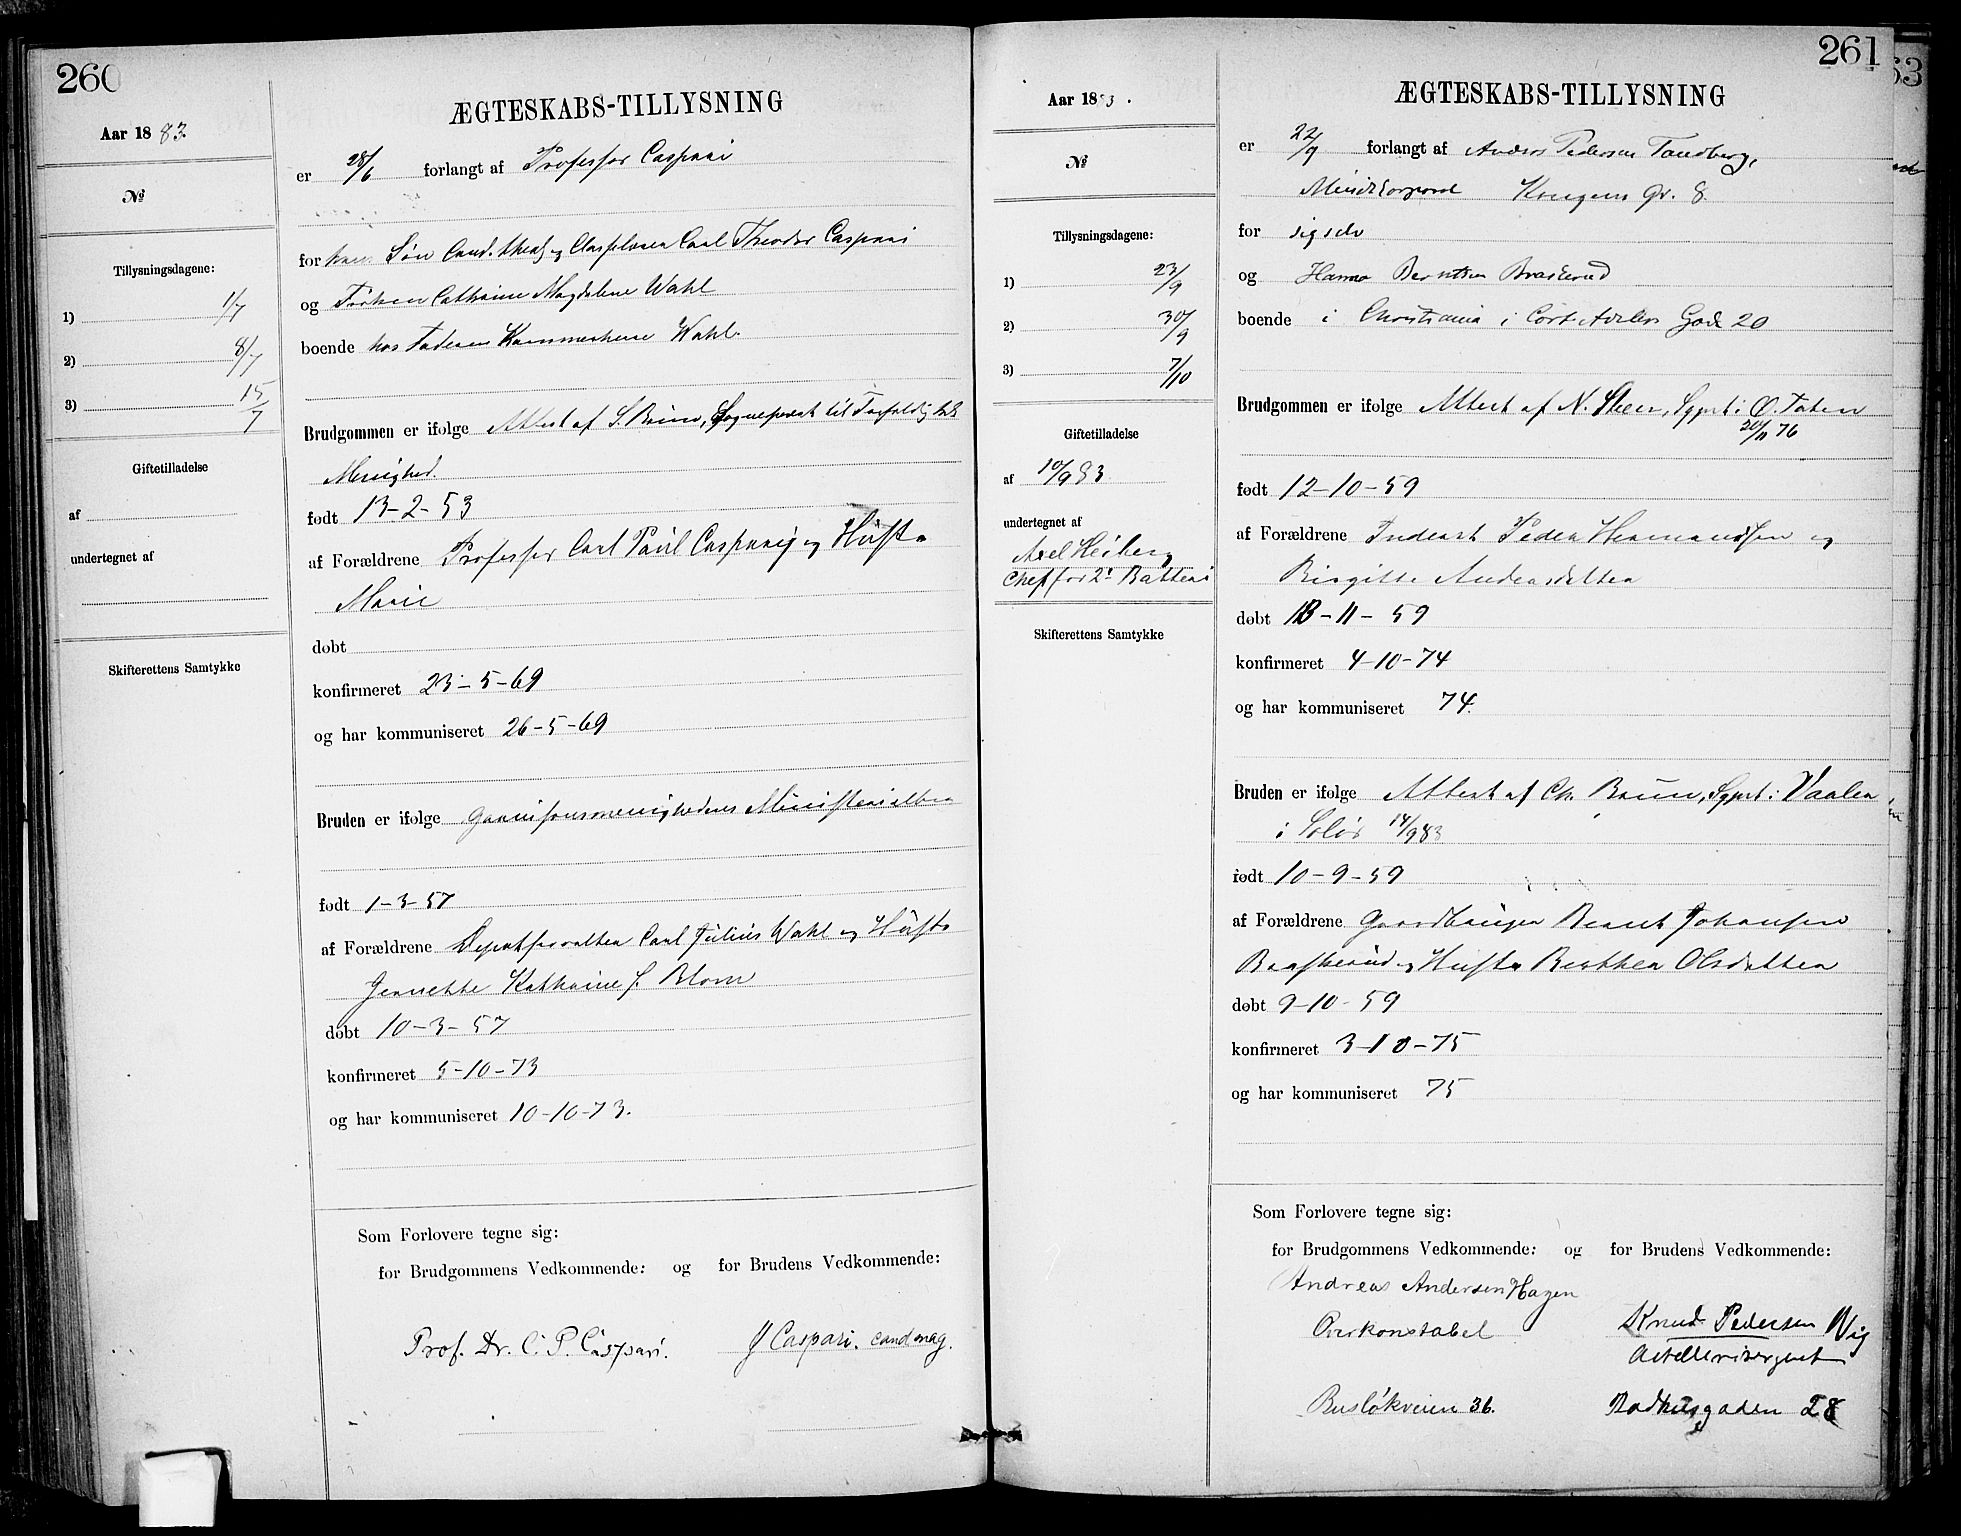 260
Aar 1883.
№
Tillysningsdagene:
1) 1/7
2) 8/7
3) 15/7
Giftetilladelse
af
undertegnet af
Skifterettens Samtykke
ÆGTESKABS-TILLYSNING
er 28/6 forlangt af Professor Caspari
for hans Søn Cand. theol. og Carl Theodor Caspari
og Frøken Cathrine Magdalene Wahl
boende hos Faderen Wahl
Brudgommen er ifølge Attest af S. Bruun, Sogneprest til Trefoldighds
Menighed.
født 13-2-53
af Forældrene Professor Carl Paul Caspari og Hustr.
Marie
døbt
konfirmeret 23-5-69
og har kommuniseret 26-5-69
Bruden er ifølge Garnisonsmenighedens Ministerialbog
født 1-3-57
af Forældrene Depotforvalter Carl Julius Wahl og Hustr.
Jeanette Kathrine f. Blom
døbt 10-3-57
konfirmeret 5-10-73
og har kommuniseret 10-10-73.
Som Forlovere tegne sig:
for Brudgommens Vedkommende: og for Brudens Vedkommende:
Prof. Dr. C. P. Caspari. J Caspari. cand mag.
261
Aar 1883.
№
Tillysningsdagene:
1) 23/9
2) 30/9
3) 7/10
Giftetilladelse
af 10/9 83
undertegnet af
Axel Heiberg
Chef for 2t Batteri
Skifterettens Samtykke
ÆGTESKABS-TILLYSNING
er 22/9 forlangt af Anders Pedersen Tandberg,
Kongens Gr. 8
for sig selv
og Hanna Berntsen Braskerud
boende i Christiania i Cort Adelers Gade 20
Brudgommen er ifølge Attest af N. Steen, Sgprst i Ø. Toten
20/11 76
født 12-10-59
af Forældrene Inderst Peder Hermandsen og
Birgitte Andersdatter
døbt 13-11-59
konfirmeret 4-10-74
og har kommuniseret 74.
Bruden er ifølge Attest af Ch. Bruun, Sgprst i Vaaler
i Solør 14/9 83
født 10-9-59
af Forældrene Gaardbruger Bernt Johansen
Braskerud og Hustr. Berthea Olsdatter
døbt 9-10-59
konfirmeret 3-10-75
og har kommuniseret 75
Som Forlovere tegne sig:
for Brudgommens Vedkommende: og for Brudens Vedkommende:
Andreas Andersen Hagen
Overkonstabel
Knud Pedersen Vig
Artellerisergent
Rusløkveien 36.
Radhusgaden 28